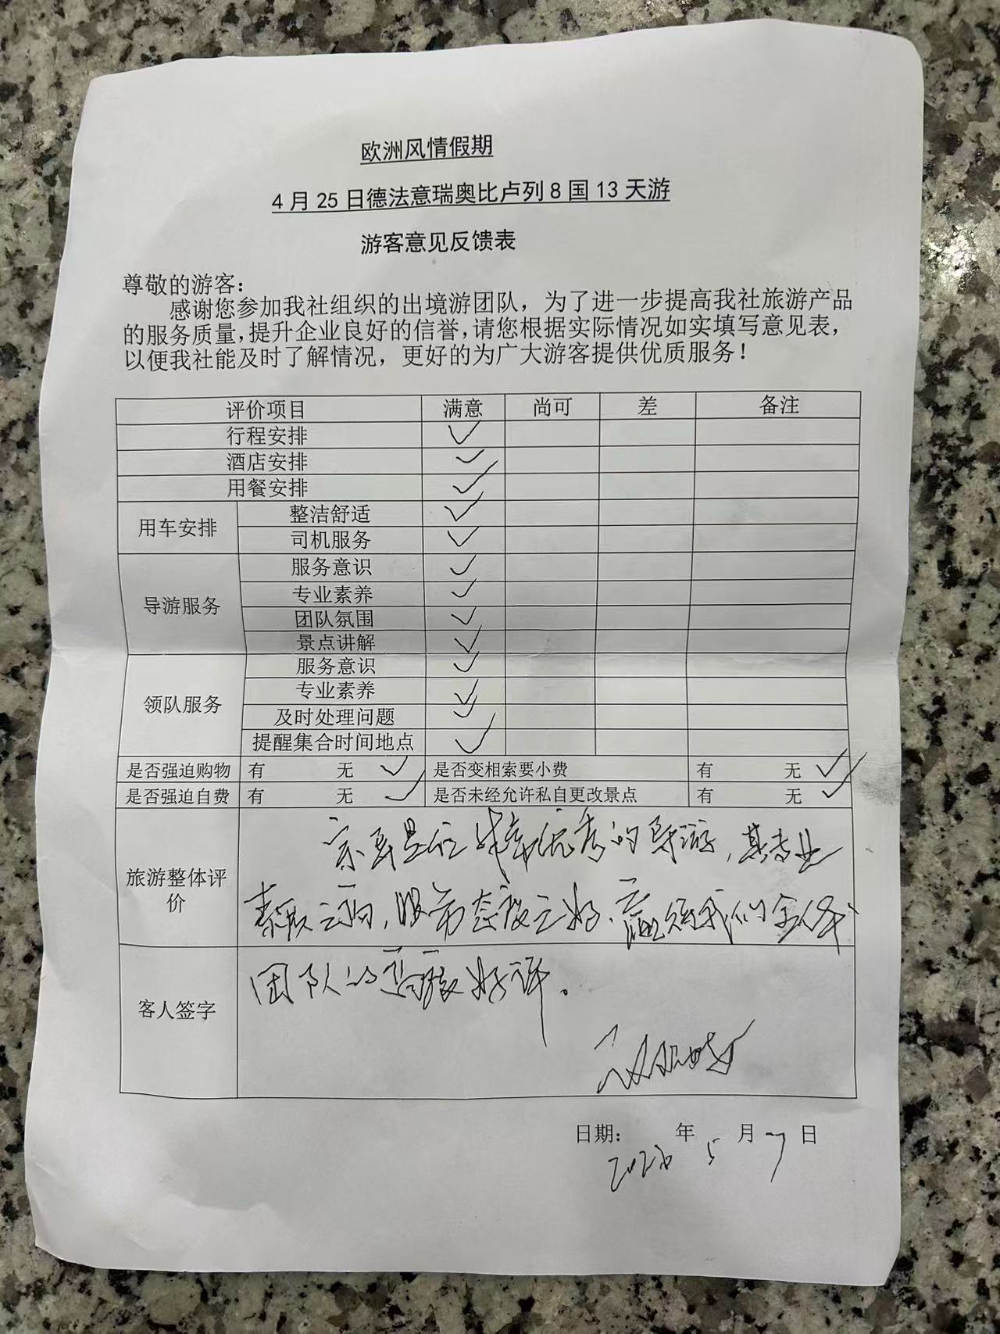 欧洲风情假期
4月25日德法意瑞奥比卢列8国13天游
游客意见反馈表
尊敬的游客：
感谢您参加我社组织的出境游团队，为了进一步提高我社旅游产品
的服务质量,提升企业良好的信誉,请您根据实际情况如实填写意见表，
以便我社能及时了解情况，更好的为广大游客提供优质服务！
评价项目 满意 尚可 差 备注
行程安排 ✓
酒店安排 ✓
用餐安排 ✓
用车安排 整洁舒适 ✓
司机服务 ✓
导游服务 服务意识 ✓
专业素养 ✓
团队氛围 ✓
景点讲解 ✓
领队服务 服务意识 ✓
专业素养 ✓
及时处理问题 ✓
提醒集合时间地点 ✓
是否强迫购物 有 无 ✓ 是否变相索要小费 有 无 ✓
是否强迫自费 有 无 ✓ 是否未经允许私自更改景点 有 无 ✓
旅游整体评价
是位非常优秀的导游，其专业
素养之高，服务态度之好，赢得我们全体
客人签字
团队的高度好评。
日期： 年 月 日
5 7